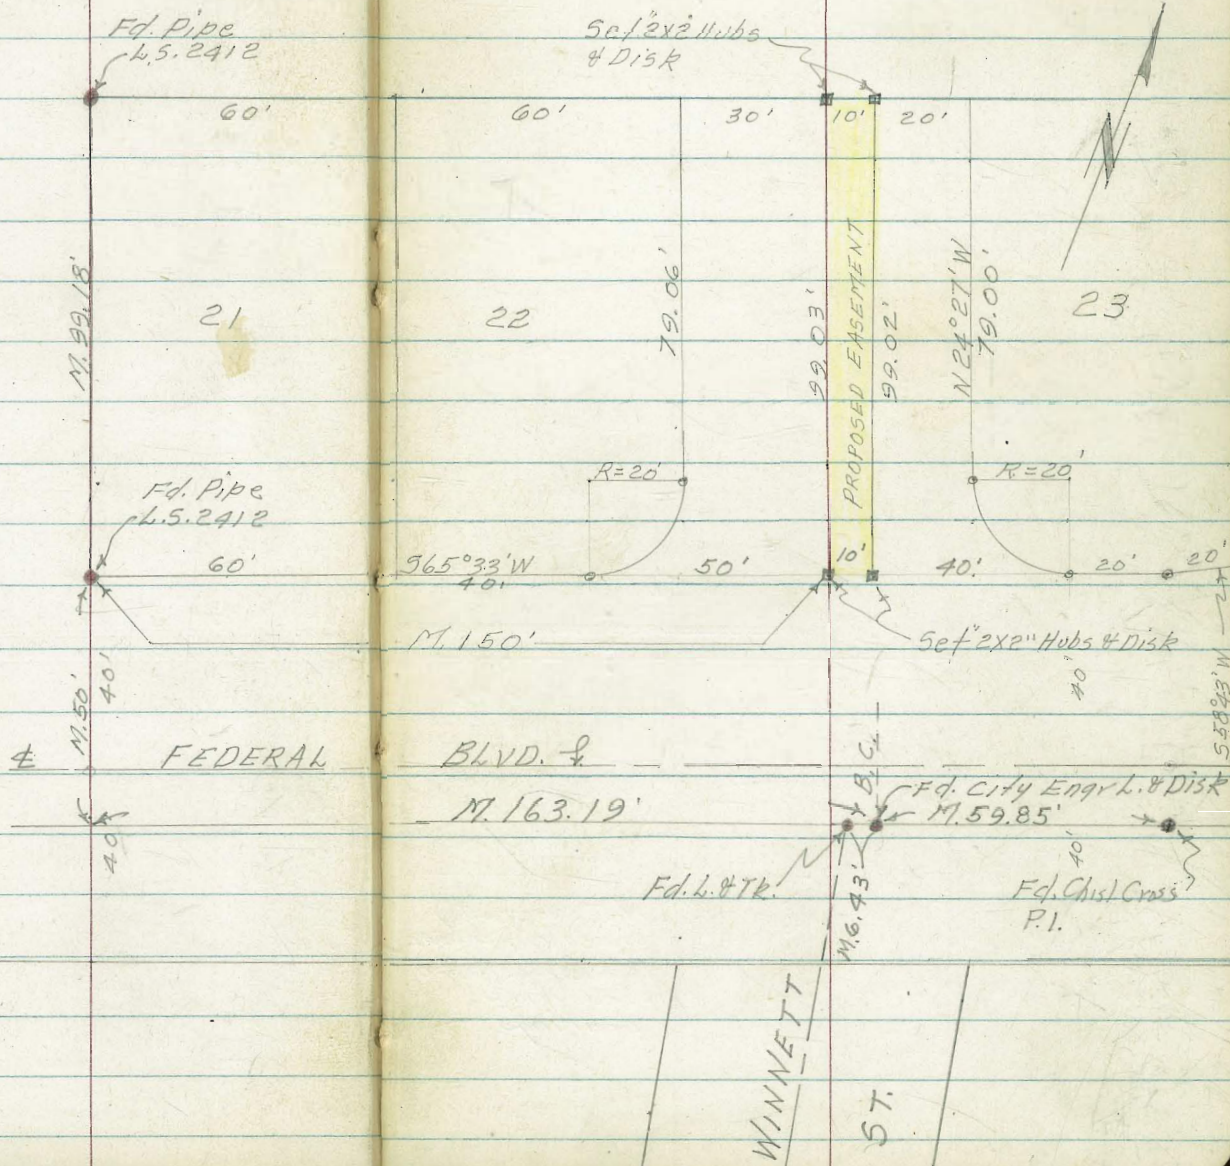 Fd. Pipe
L.S. 2412
Set 2"x2" Hubs
& Disk
60'
60'
30'
10'
20'
N
M. 99.18'
21
22
79.06'
99.03'
PROPOSED EASEMENT
99.02'
N24°27'W
79.00'
23
Fd. Pipe
L.S. 2412
R=20'
R=20'
60'
S65°33'W
40'
50'
10'
40'
20'
20'
M. 150'
Set 2"x2" Hubs & Disk
M. 50'
40'
40'
S58°43'W
℄ FEDERAL BLVD. ℄
B.C.
Fd. City Engr L. & Disk
M. 163.19'
M. 59.85'
40'
40'
Fd. L. & Tk.
M. 6.43'
Fd. Chisl Cross
P.I.
WINNETT ST.